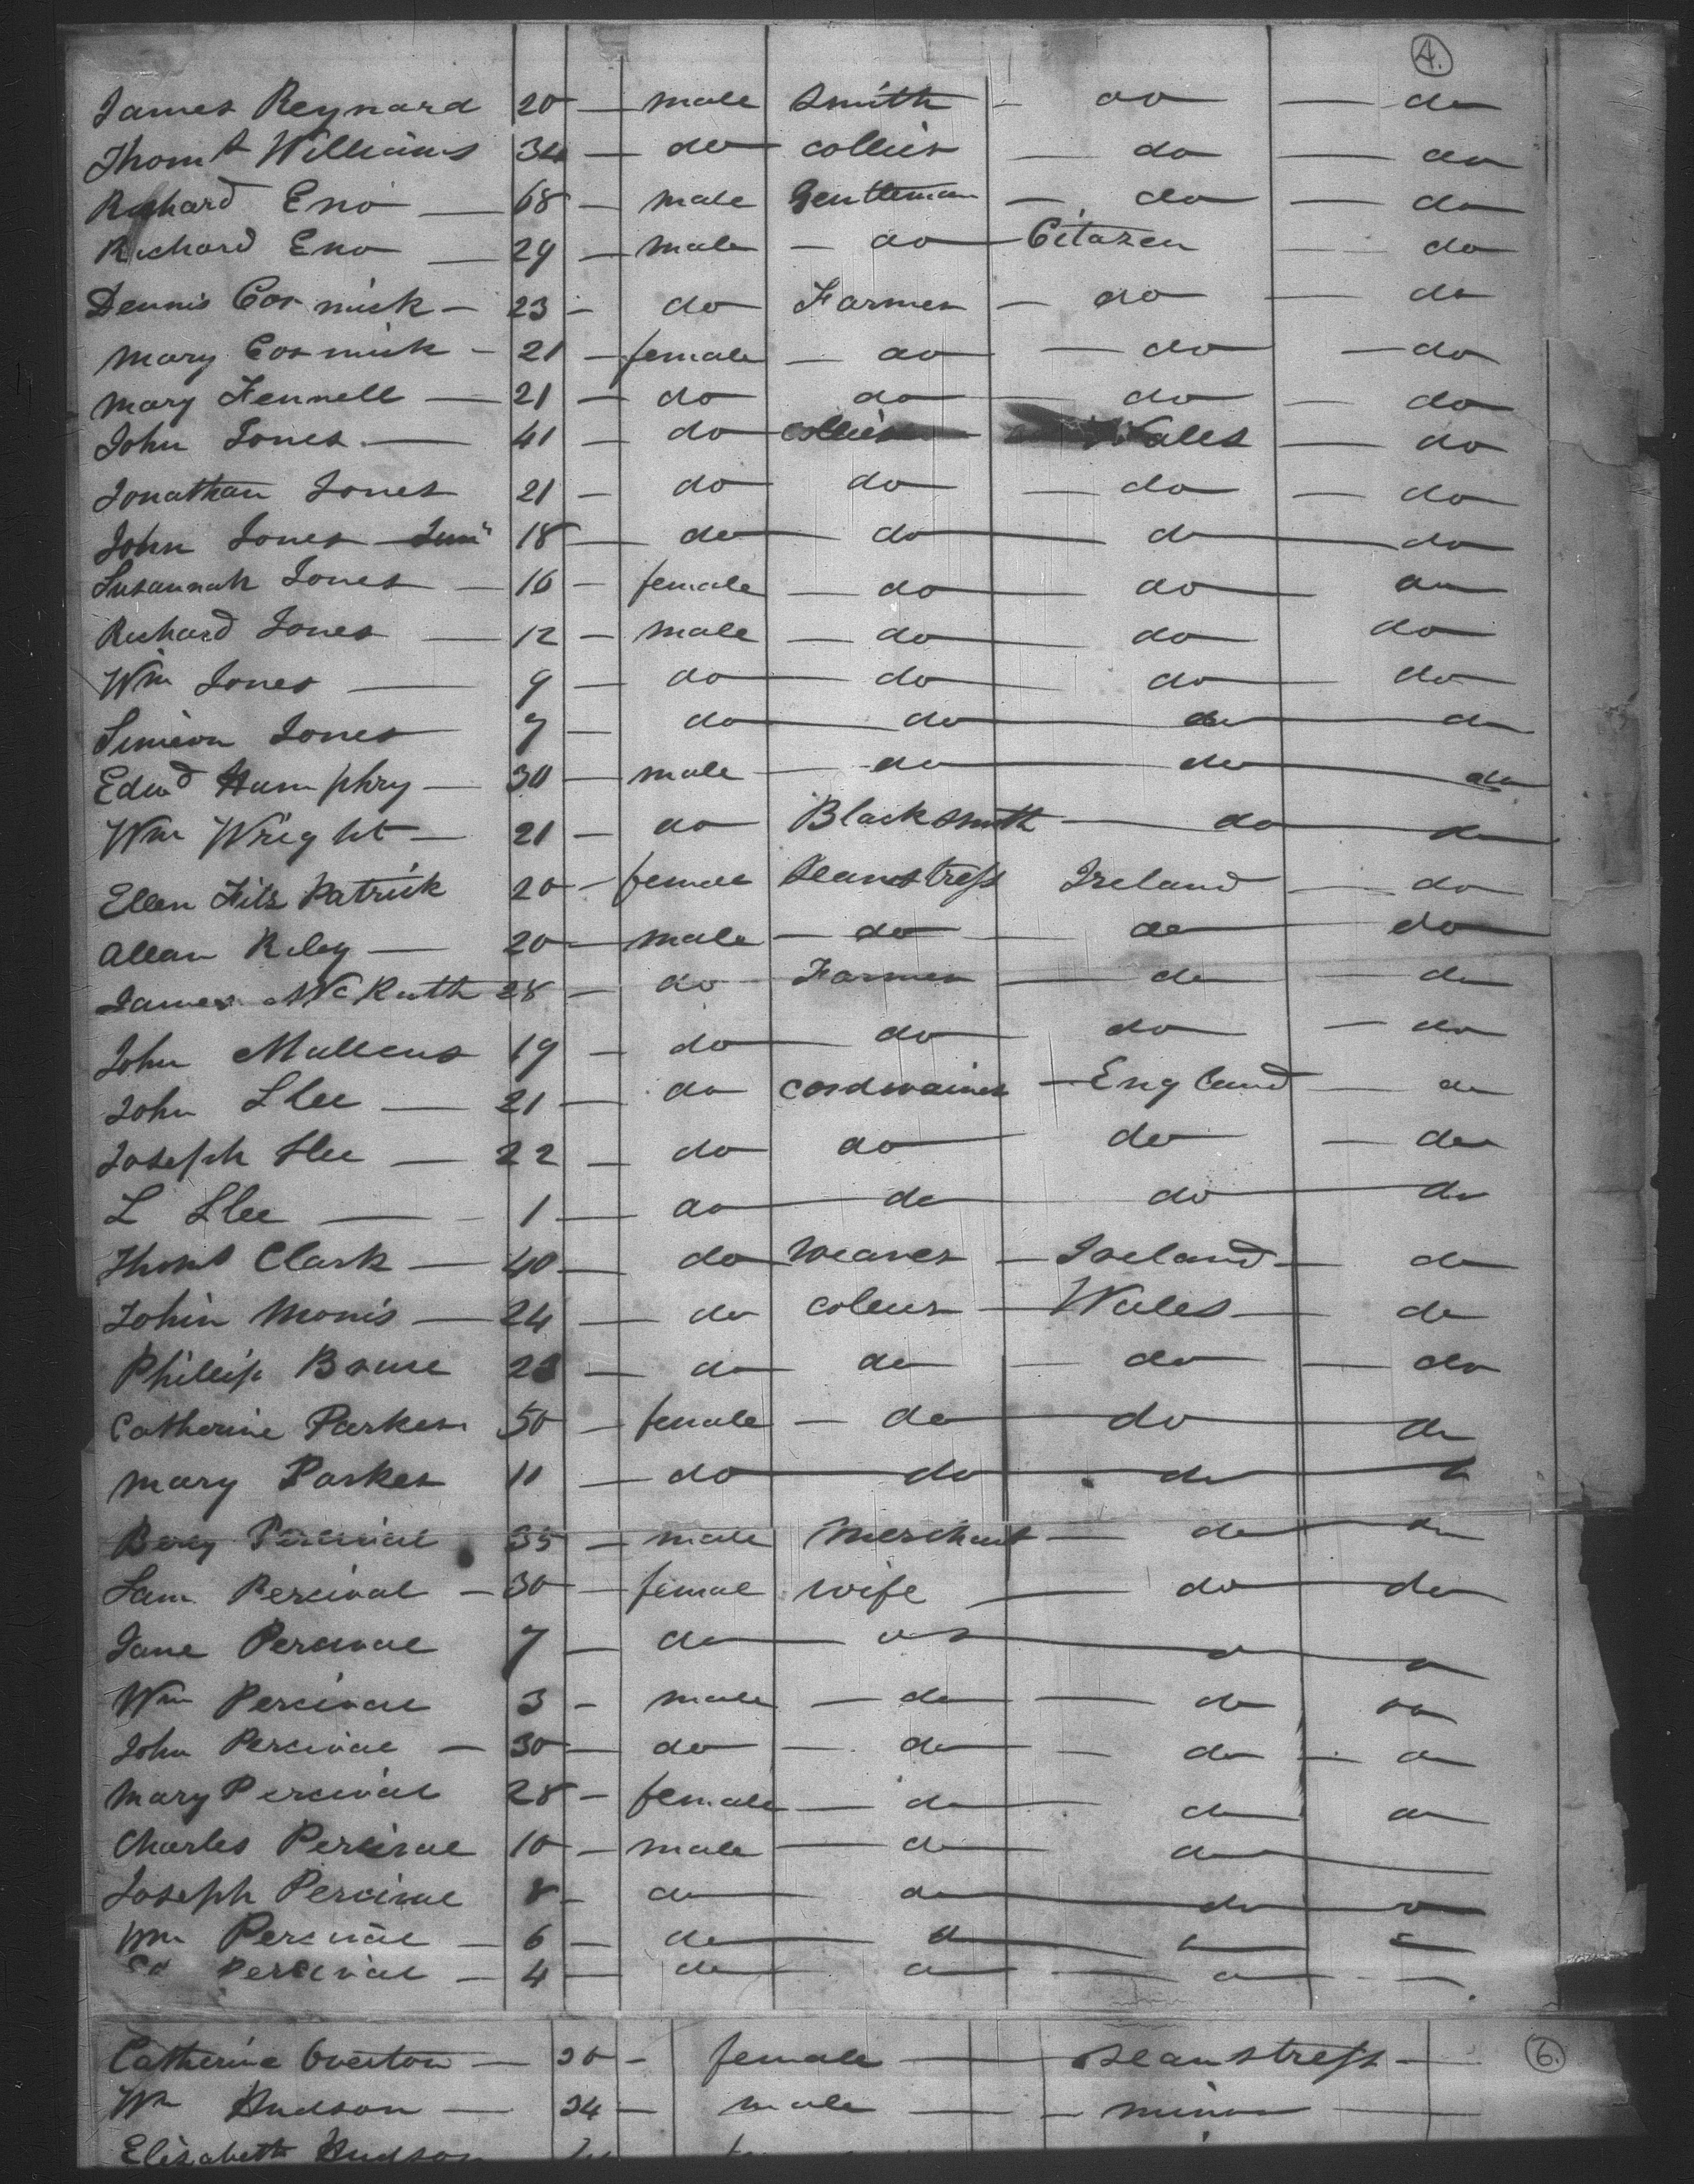 4.
James Reynard 20 — male Smith - do — do
Thoms Williams 34 — do collier — do — do
Richard Eno — 68 — male Gentleman — do — do
Richard Eno — 29 — male — do — Citazen do
Dennis Cormick — 23 — do Farmer — do — do
Mary Cormick — 21 — female — do — do — do
Mary Fennell — 21 — do do do — do
John Jones — 41 — do collier Wales — do
Jonathan Jones 21 — do do — do — do
John Jones Junr 18 — do — do — do — do
Susannah Jones — 16 — female — do — do — do
Richard Jones — 12 — male — do do do
Wm Jones — 9 — do — do — do — do
Simeon Jones 7 — do — do — do — do
Edwd Humphry — 30 — male — do — do — do
Wm Wright — 21 — do Blacksmith — do — do
Ellen Fitz Patrick 20 — female Seamstress Ireland — do
Allan Riley — 20 — male — do — do — do
James McRuth 28 — do Farmer — do — do
John Mullens 19 — do — do do — do
John Slee — 21 — do cordwainer — England — do
Joseph Slee — 22 — do do do — do
L Slee — 1 — do — do — do — do
Thoms Clark — 40 — do Weaver — Ireland — do
John Morris — 24 — do colier — Wales — do
Phillip Bruse 23 — do do — do — do
Catherine Parker 50 — female — do — do — do
Mary Parker 11 — do — do — do
Percival 35 — male Merchant — do — do
Percival — 30 — female wife — do — do
Jane Percival 7 — do
Wm Percival 3 — male — do — do do
John Percival — 30 — do — do — do — do
Mary Percival 28 — female — do — do do
Charles Percival 10 — male — do — do —
Joseph Percival 8 — do — do — do
Wm Percival — 6 — do
Ed Percival — 4 — do
Catherine Overton — 20 — female — Seamstress — 6.
Wm Hudson — 24 — male — minor —
Elizabeth Hudson